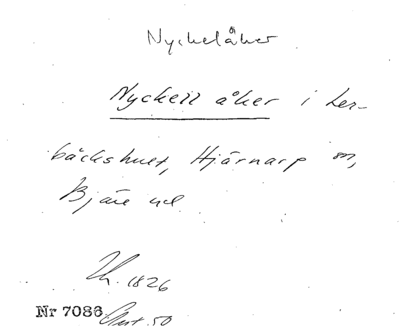 Nyckelåker
Nyckell åker i Ler-
bäckshult, Hjärnarp sn,
Bjäre hd
1826
Nr 7086 50